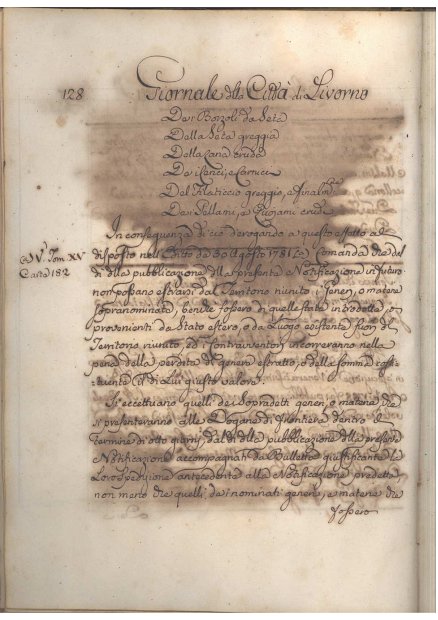 128
Giornale della Città di Livorno
Dei Bozzoli da Seta
Della Seta greggia
Della Lana cruda
Dei Cenci, e Carnicci
Del Filaticcio greggio, e finalm.te
Dei Pellami, e Cuojami crudi
In conseguenza di ciò derogando a questo effetto al
V. Tom. XV
disposto nell'Editto da 30 Agosto 1781 Comanda che dal
Carta 182
dì della pubblicazione della presente Notificazione in futuro
non possano estrarsi dal Territorio riunito i Generi, o materie
sopranominate, benchè fossero di quelle state introdotte, o
provenienti da Stato estero, o da Luogo esistente fuori del
Territorio riunito ed i Contravventori incorreranno nella
pena della perdita del genere estratto, o della somma costi-
tuente il di Lui giusto valore.
Si eccettuano quelli dei sopradetti generi, o materie che
si presenteranno alle Dogane di frontiera dentro il
termine di otto giorni, dal dì della pubblicazione della presente
Notificazione accompagnati da Bulletta giustificante la
Loro Spedizione antecedente alla Notificazione predetta
non meno che quelli dei nominati generi, e materie che
fossero